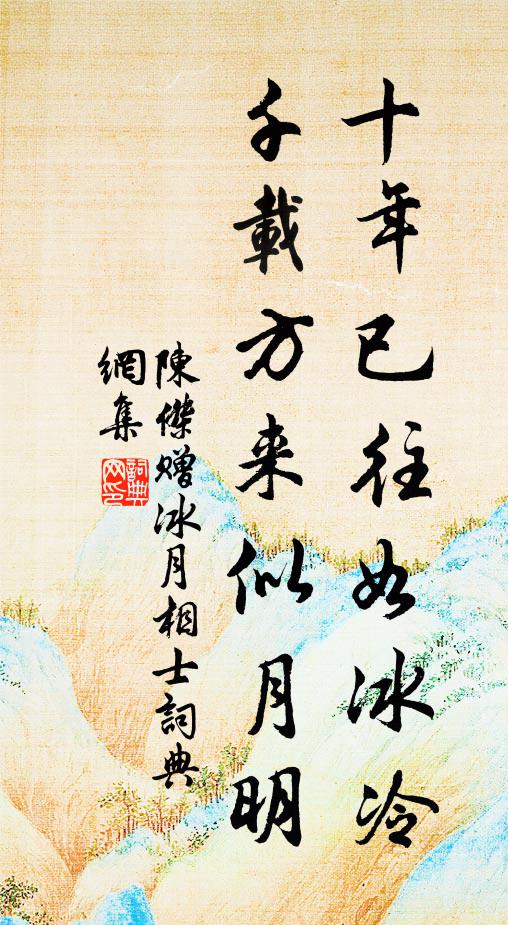 十年已往如冰冷
千載方来似月明
陳傑贈冰月相士詞典
網集
詞典
网印